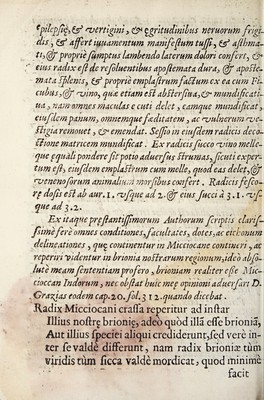 epilepsię, & vertigini, & ęgritudinibus neruorum frigi-
dis, & affert iuuamentum manifestum tussi, & asthma-
ti, & proprie sumptus lambendo laterum dolori confert, &
eius radix est de resoluentibus apostemata dura, & aposte-
mata splenis, & propriè emplastrum factum ex ea cum Fi-
cubus, & vino, quia etiam est abstersiua, & mundificati-
ua, nam omnes maculas e cuti delet, eamque mundificat,
eiusdem panum, omnemque fęditatem, ac vulnerum ve-
stigia remouet, & emendat. Sessio in eiusdem radicis deco-
ctione matricem mundificat. Ex radicis succo vino melle-
que equali pondere fit potio aduersus strumas, sicuti exper-
tum est, eiusdem emplastrum cum melle, quod eas delet, &
venenosorum animalium morsibus confert. Radicis fesco-
rę dosis est ab aur. 1. vsque ad 2. & eius succi à 3.1. vs-
que ad 3.2.
Ex itaque prestantissimorum Authorum scriptis claris-
simè ferè omnes conditiones, facultates, dotes, ac eiconum
delineationes, quę continentur in Micciocane conti
uneri, ac
reperiri videntur in brionia nostrarum regionum, ideò abso-
lutè meam sententiam profero, brioniam realiter esse Mic-
cioccan Indorum, nec obstat huic meę opinioni aduersari D.
Grazias eodem cap. 20. fol. 312. quando dicebat.
Radix Micciocani crassa reperitur ad instar
Illius nostrę brionię, adeò quòd illā esse brioniā,
Aut illius speciei aliqui crediderunt, sed verè in-
ter se valdè differunt, nam radix brioniæ tùm
viridis tùm sicca valdè mordicat, quod minimè
facit